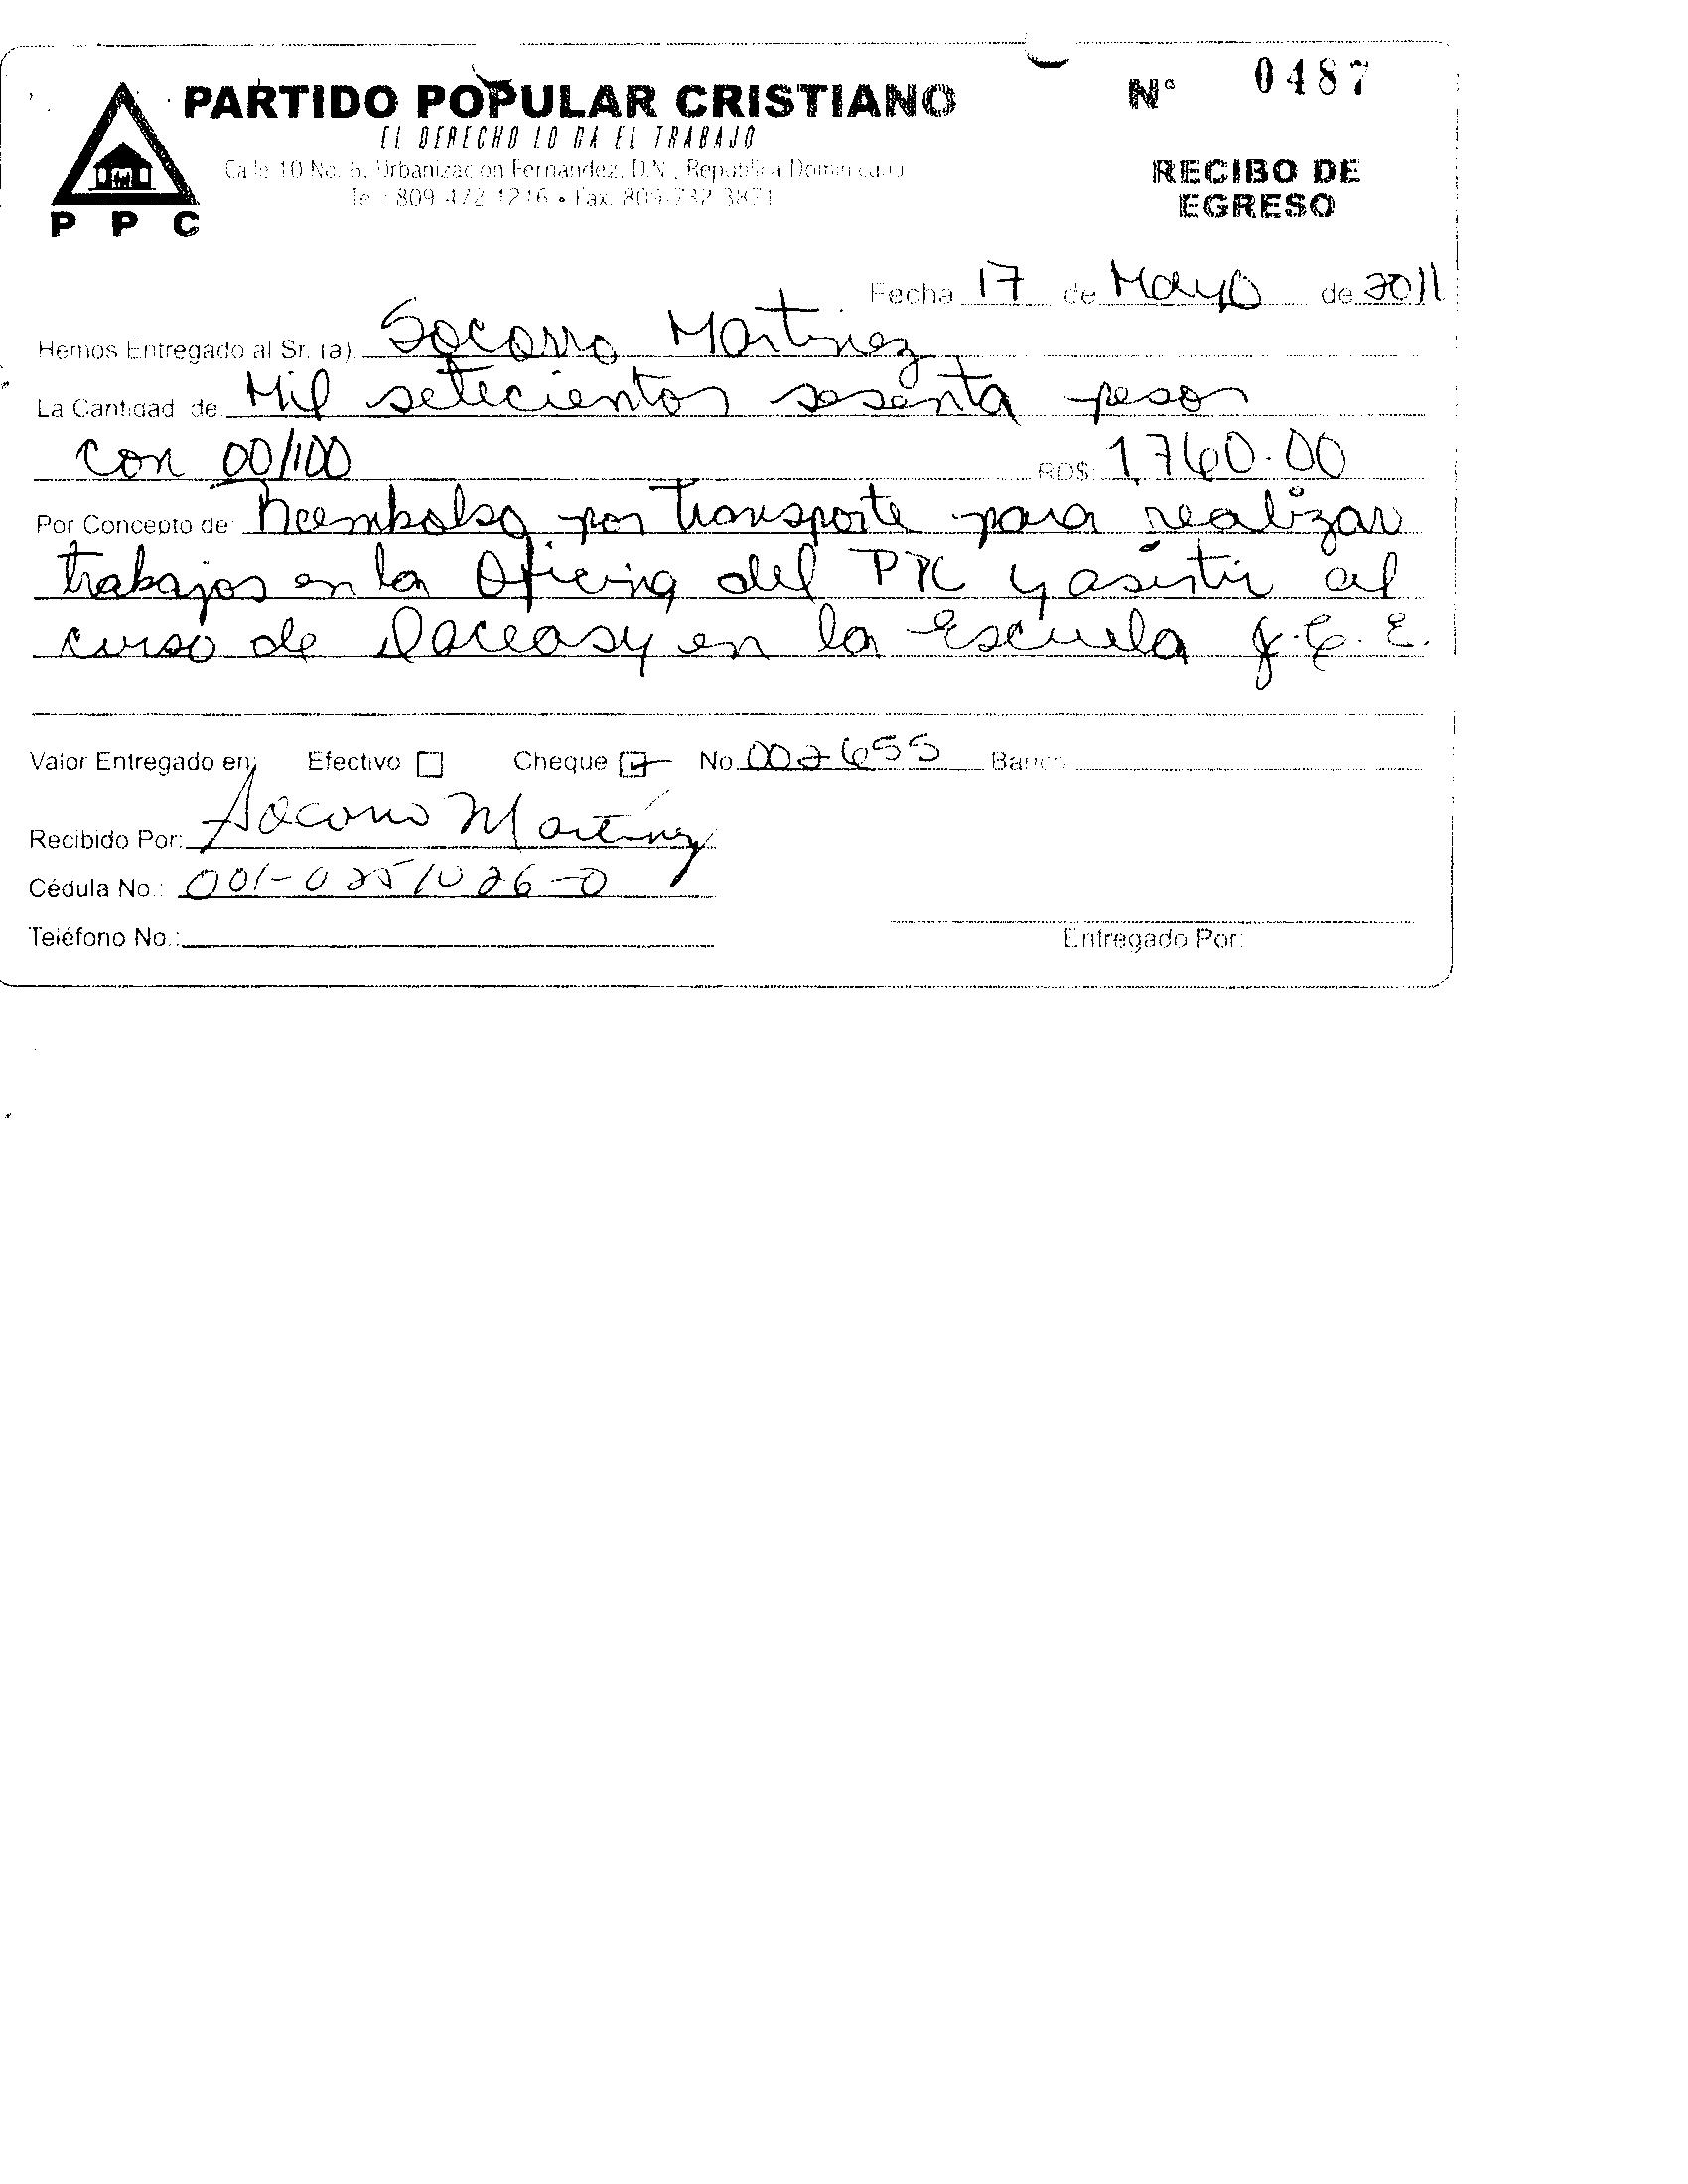 PARTIDO POPULAR CRISTIANO
Nº 0487
EL DERECHO LO DA EL TRABAJO
Calle 10 No. 6, Urbanizacion Fernandez, D.N., Republica Dominicana
Tel.: 809-472-1216 • Fax: 809-732-3871
RECIBO DE
EGRESO
P P C
Fecha 17 de Mayo de 2011
Hemos Entregado al Sr. (a) Socorro Martinez
La Cantidad de Mil setecientos sesenta pesos
con 00/100 RD$: 1,760.00
Por Concepto de: Reembolso por transporte para realizar
trabajos en la Oficina del PPC y asistir al
curso de Daceasy en la Escuela J.C.E.
Valor Entregado en: Efectivo Cheque No 002655 Banco
Recibido Por: Socorro Martínez
Cédula No.: 001-0251026-0
Teléfono No.:
Entregado Por: